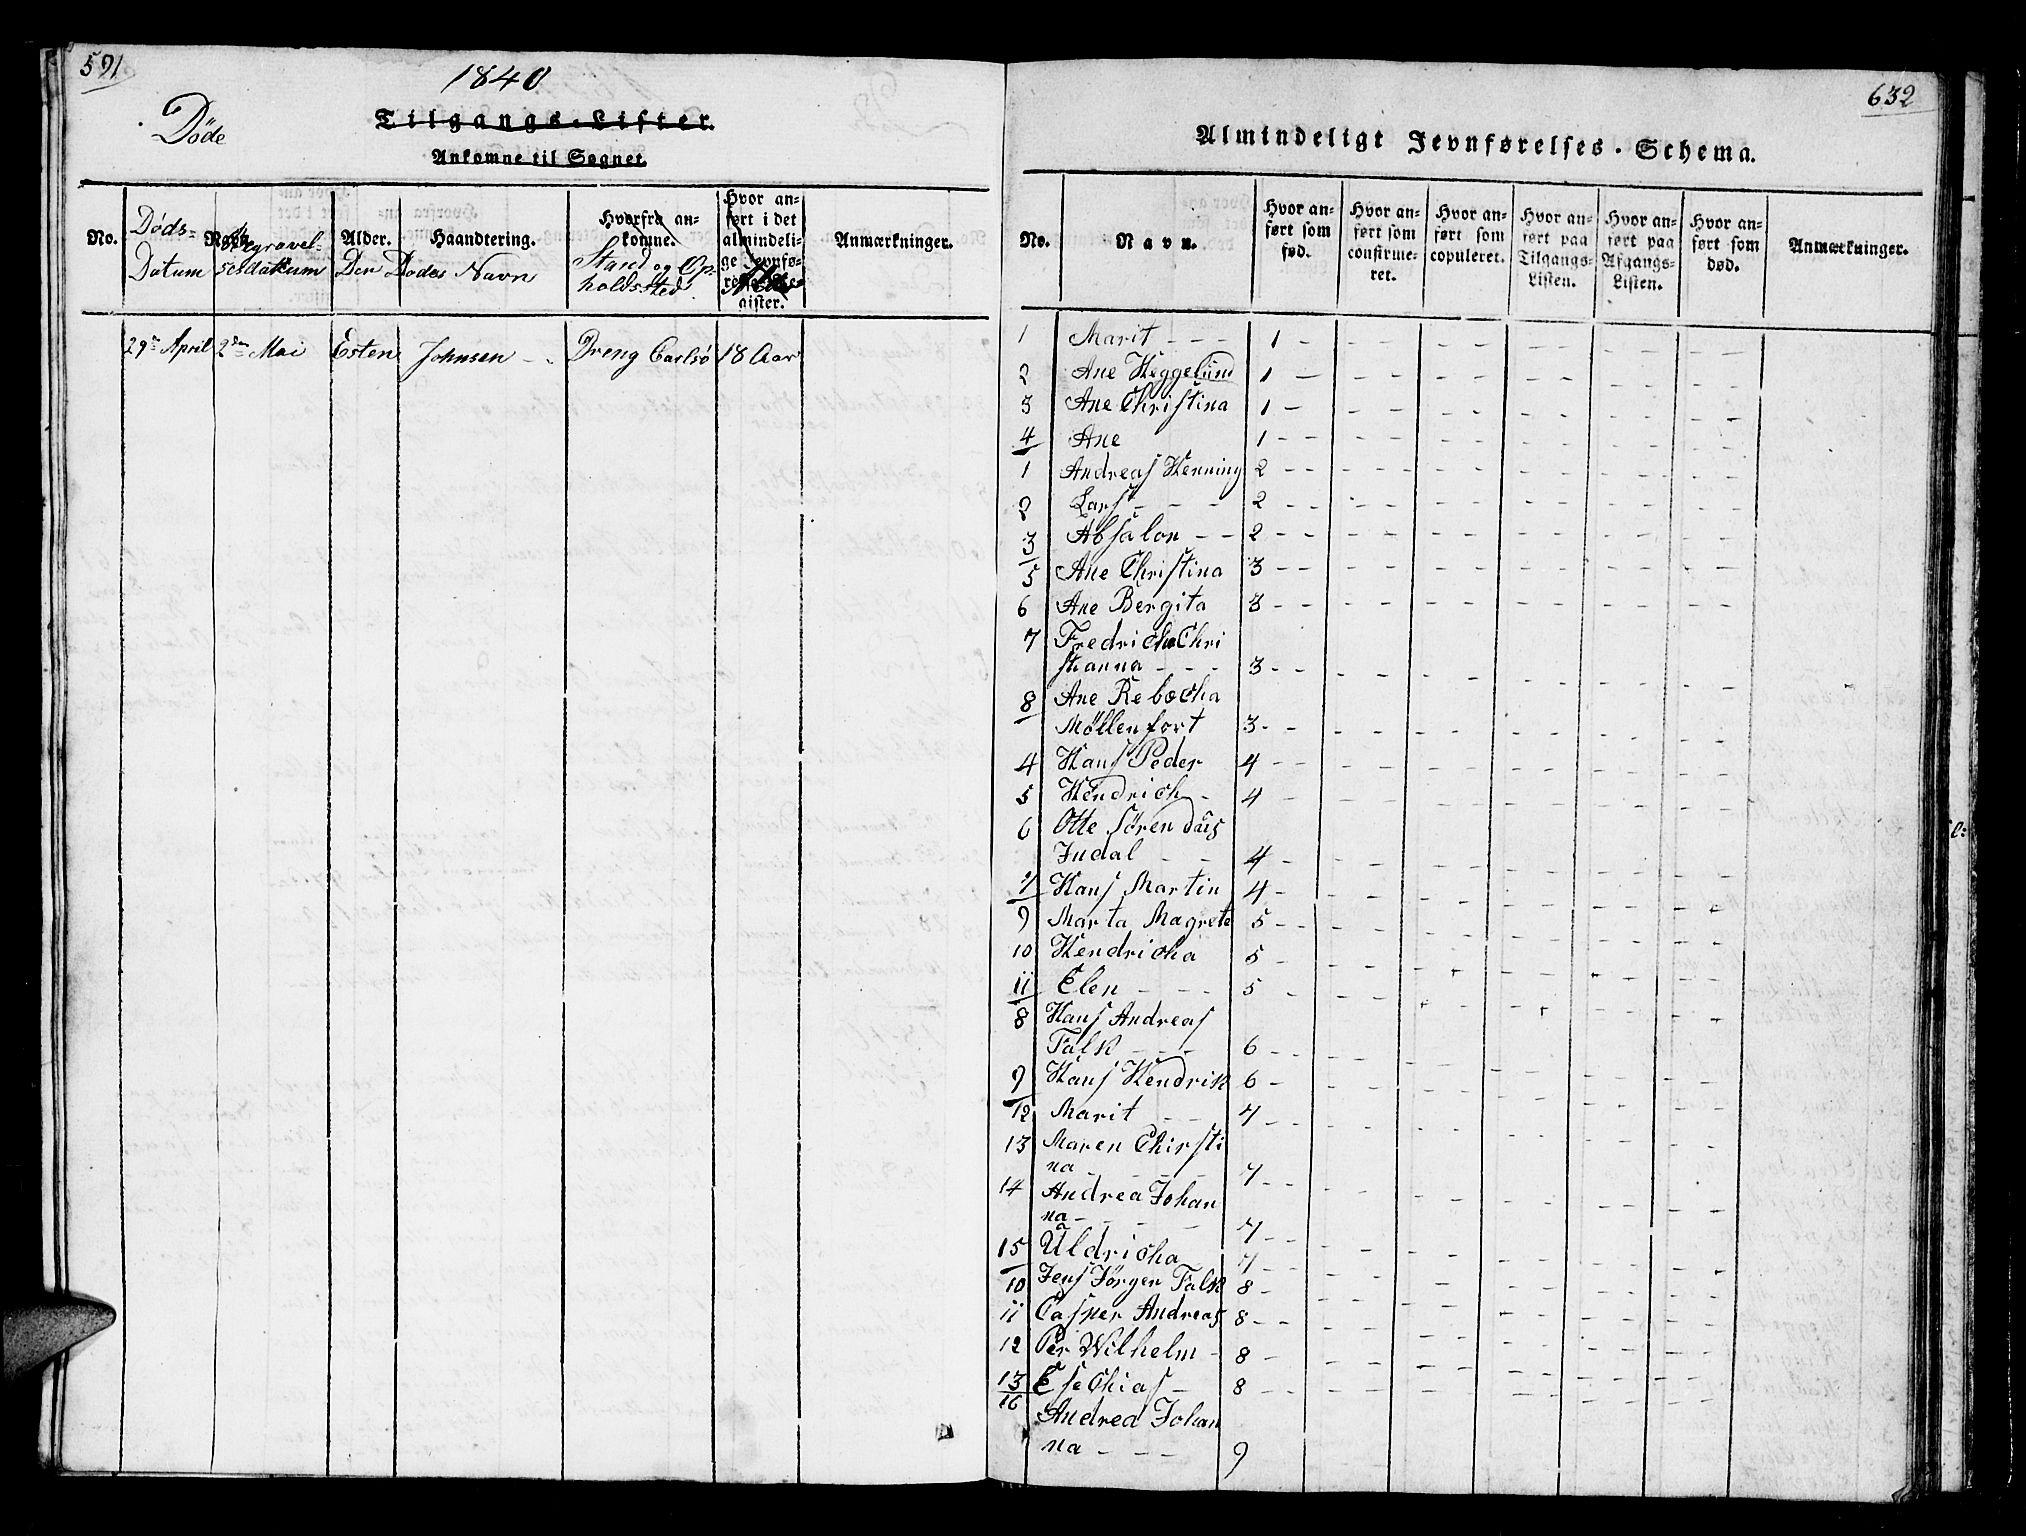 591
1840
Döde
Tilgangs-Lister.
Ankomne til Sognet.
No.
Døds-
Datum
Navn.
Begravel-
sesdatum
Alder.
Haandtering.
Den Dødes Navn
Hvorfra an-
komne.
Stand og Op-
holdssted
Hvor an-
ført i det
almindeli-
ge Jevnfø-
relses-Re-
gister.
Alder
Anmærkninger.
29de April 2den Mai Esten Johnsen - - Dreng Carlsö 18 Aar
632
Almindeligt Jevnførelses-Schema.
No.
Navn.
Hvor an-
ført som
fød.
Hvor an-
ført som
confirme-
ret.
Hvor an-
ført som
copuleret.
Hvor an-
ført paa
Tilgangs-
Listen.
Hvor an-
ført paa
Afgangs-
Listen.
Hvor an-
ført som
død.
Anmærkninger.
1 Marit - - - 1
2 Ane Heggelund 1
3 Ane Christina 1
4 Ane 1
1 Andreas Henning 2
2 Lars - - - 2
3 Absalon - - 2
5 Ane Christina 3
6 Ane Bergita 3
7 Fredricha Chri
stianna - - - 3
8 Ane Rebecha
Møllenfort 3
4 Hans Peder 4
5 Hendrich - 4
6 Otte Sören
Indal - - 4
7 Hans Martin 4
9 Marta Magrete 5
10 Hendricha 5
11 Elen - - - 5
8 Hans Andreas
Falk - - - 6
9 Hans Hendrik 6
12 Marit - - 7
13 Maren Chirsti
na - - - - 7
14 Andrea Johan
na - - - - 7
15 Uldricha 7
10 Jens Jörgen Falk 8
11 Casper Andreas 8
12 Per Wilhelm - 8
13 Esechias - 8
16 Andrea Johan
na - - - 9